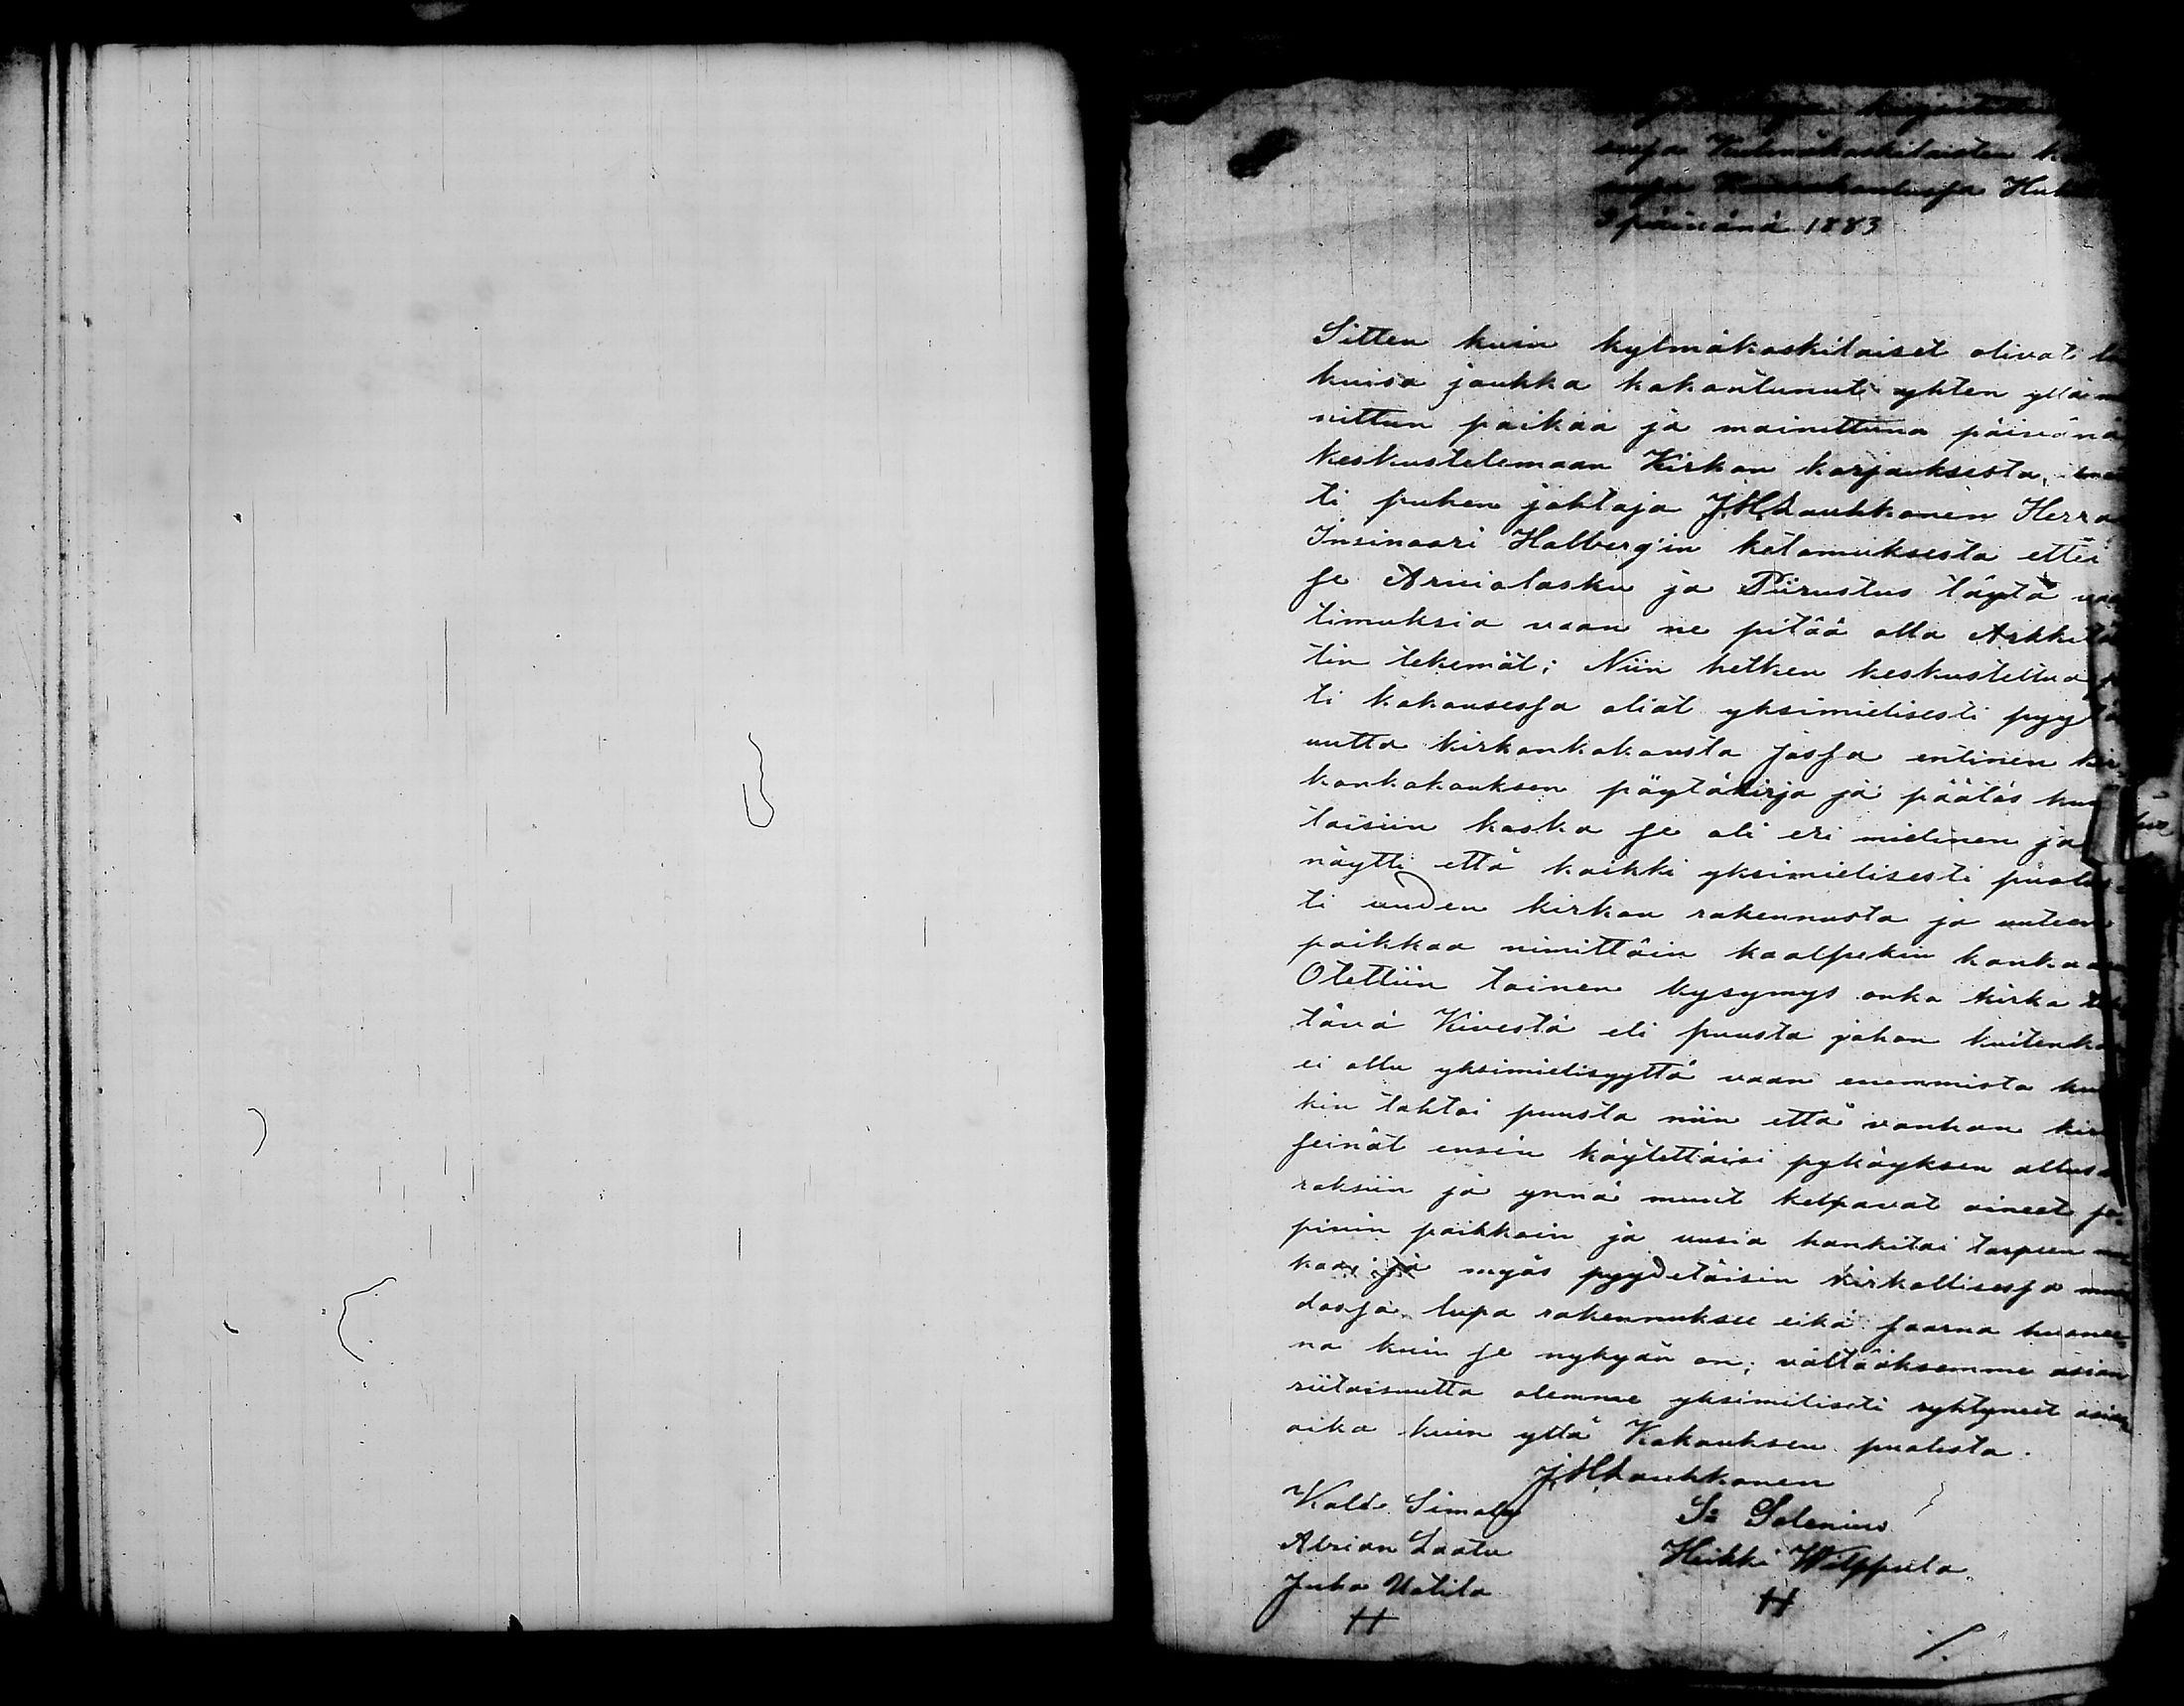 kirjoitettu
Kulmäkoskilaisten
Kansakoulusſa Huh
3 päivänä 1883
Sitten kuin kylmäkoskilaiset olivat lu
kuisa joukka kokontunut yhten yllä m
nittun paikaa ja mainittuna päivänä
keskustelemaan Kirkon korjauksesta,
ti puhen johtaja J.H.Laukkonen Herra
Insinoori Hallberg'in ketomuksesta ettei
ſe Arviolasku ja Piirustus täytä vaa
timuksia vaan ne pitää olla Arkkite
tin tekemät; Niin hetken keskusteltua
ti kokousesſa oliat yksimielisesti pyytä
uutta kirkonkokousta josſa entinen kir-
konkokouksen pöytäkirja ja päätös ku
taisiin koska ſe oli eri mielinen ja
näytti että kaikki yksimielisesti puolus-
ti uuden kirkon rakennusta ja uuteen
paikkaa nimittäin kaalpekin konkaan
Otettiin toinen kysymys onko kirko teh
tävä Kivestä eli puusta johon kuitenka
ei ollu yksimielisyyttä vaan enemmisto kui
kin tahtoi puusta niin että vanhan kirk
ſeinät ensin käytettäisi pykäyksen allus
raksiin ja ynnä muut kelpavat aineet ſo-
pivin paikkoin ja uusia hankitai tarpeen mu
kaa, ja myös pyydetäisin kirkollisesſa muo
dosſa lupa rakennuksee eikä ſaarna huonee-
na kuin ſe nykyän on; välttääksemme asian
riitaisuutta olemme yksimilisesti ryhtyneet asian
aika kuin yllä Kokouksen puolesta.
J.H.Laukkonen
Kalle Simola S: Selenius
Abrian Laatu Heikki Wilppula
Juha Uotila H
H
1.